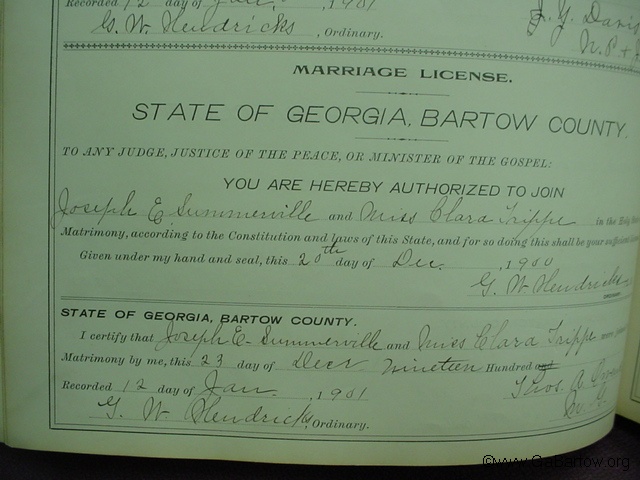 Recorded 12 day of Jan. , 1901
J. Y. Davis
G. W. Hendricks , Ordinary.
N. P. &
MARRIAGE LICENSE.
STATE OF GEORGIA, BARTOW COUNTY.
TO ANY JUDGE, JUSTICE OF THE PEACE, OR MINISTER OF THE GOSPEL:
YOU ARE HEREBY AUTHORIZED TO JOIN
Joseph E. Summerville and Miss Clara Trippe in the Holy
Matrimony, according to the Constitution and laws of this State, and for so doing this shall be your sufficient
Given under my hand and seal, this 20th day of Dec. , 1900
G. W. Hendricks
STATE OF GEORGIA, BARTOW COUNTY.
I certify that Joseph E. Summerville and Miss Clara Trippe were
Matrimony by me, this 23 day of Decr nineteen Hundred and
Recorded 12 day of Jan. , 1901
Thos. A.
G. W. Hendricks, Ordinary.
M. G.
©www.GaBartow.org